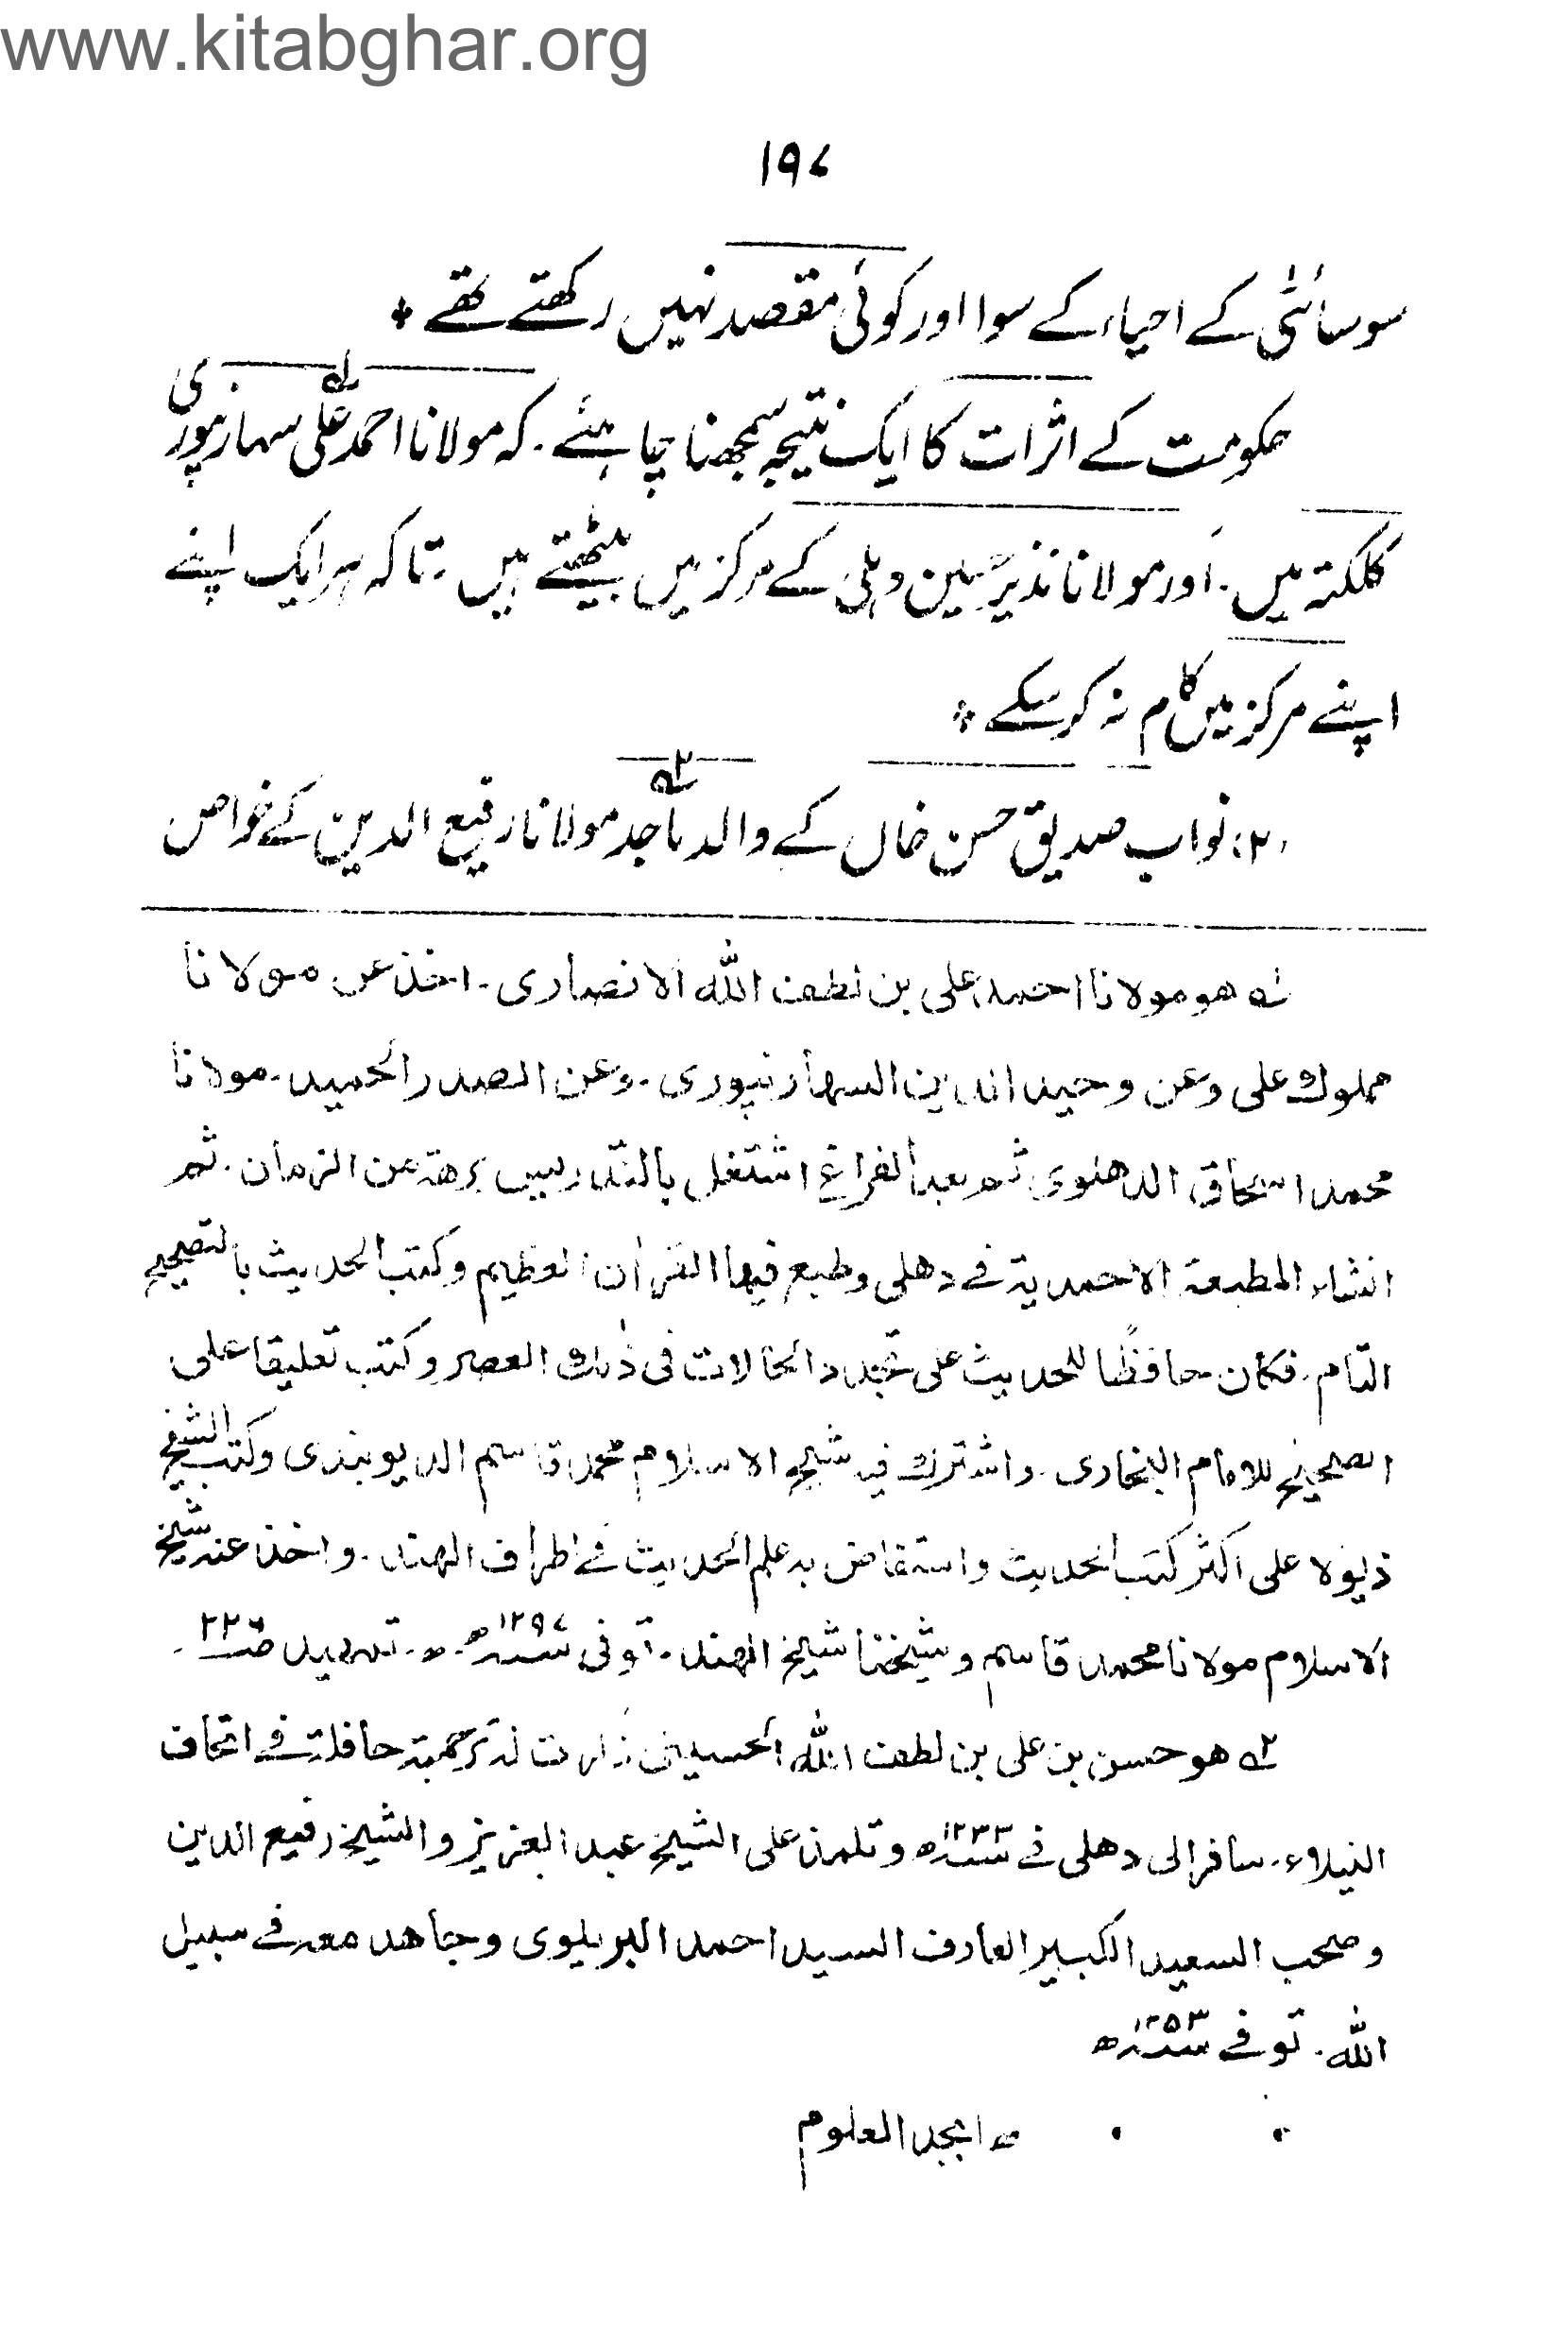 www.kitabghar.org
۱۹۷
سوسائٹی کے احیاء کے سوا اور کوئی مقصد نہیں رکھتے تھے *
حکومت کے اثرات کا ایک نتیجہ سمجھنا چاہئے۔ کہ مولانا احمد علی ۱ سہارنپوری
کلکتہ میں۔ اور مولانا نذیر حسین دہلی کے مرکز میں بیٹھتے ہیں۔ تاکہ ہر ایک اپنے
اپنے مرکز میں کام نہ کر سکے *
(۲) نواب صدیق حسن خاں کے والد ماجد ۲ مولانا رفیع الدین کے خواص
۱ ھو مولانا احمد علی بن لطف اللہ الانصاری۔ اخذ عن مولانا
مملوک علی وعن وحید الدین السہارنپوری۔ وعن الصدر الحمید۔ مولانا
محمد اسحاق الدھلوی ثم بعد الفراغ اشتغل بالتدریس برھۃ من الزمان۔ ثم
انشاء المطبعۃ الاحمدیۃ فے دھلی وطبع فیھا القرآن العظیم وکتب الحدیث بالتصحیح
التام۔ فکان حافظًا للحدیث علی تجدد الحالات فی ذلک العصر وکتب تعلیقا علی
الصحیح للامام البخاری۔ واشترک فیہ شیخ الاسلام محمد قاسم الدیوبندی وکتب الشیخ
ذیولا علی اکثر کتب الحدیث واستفاض بہ علم الحدیث فے اطراف الھند۔ واخذ عنہ شیخ
الاسلام مولانا محمد قاسم وشیخنا شیخ الھند۔ توفی سنہ ۱۲۹۷ھ۔ تمہید ص۲۲۶۔
۲ ھو حسن بن علی بن لطف اللہ الحسینی لہ ترجمۃ حافلۃ فے اتحاف
النبلاء۔ سافر الی دھلی فے سنہ ۱۲۳۳ھ وتلمذ علی الشیخ عبد العزیز والشیخ رفیع الدین
وصحب السعید الکبیر العارف السید احمد البریلوی وجاھد معہ فے سبیل
اللہ۔ توفے سنہ ۱۲۵۳ھ
ابجد العلوم